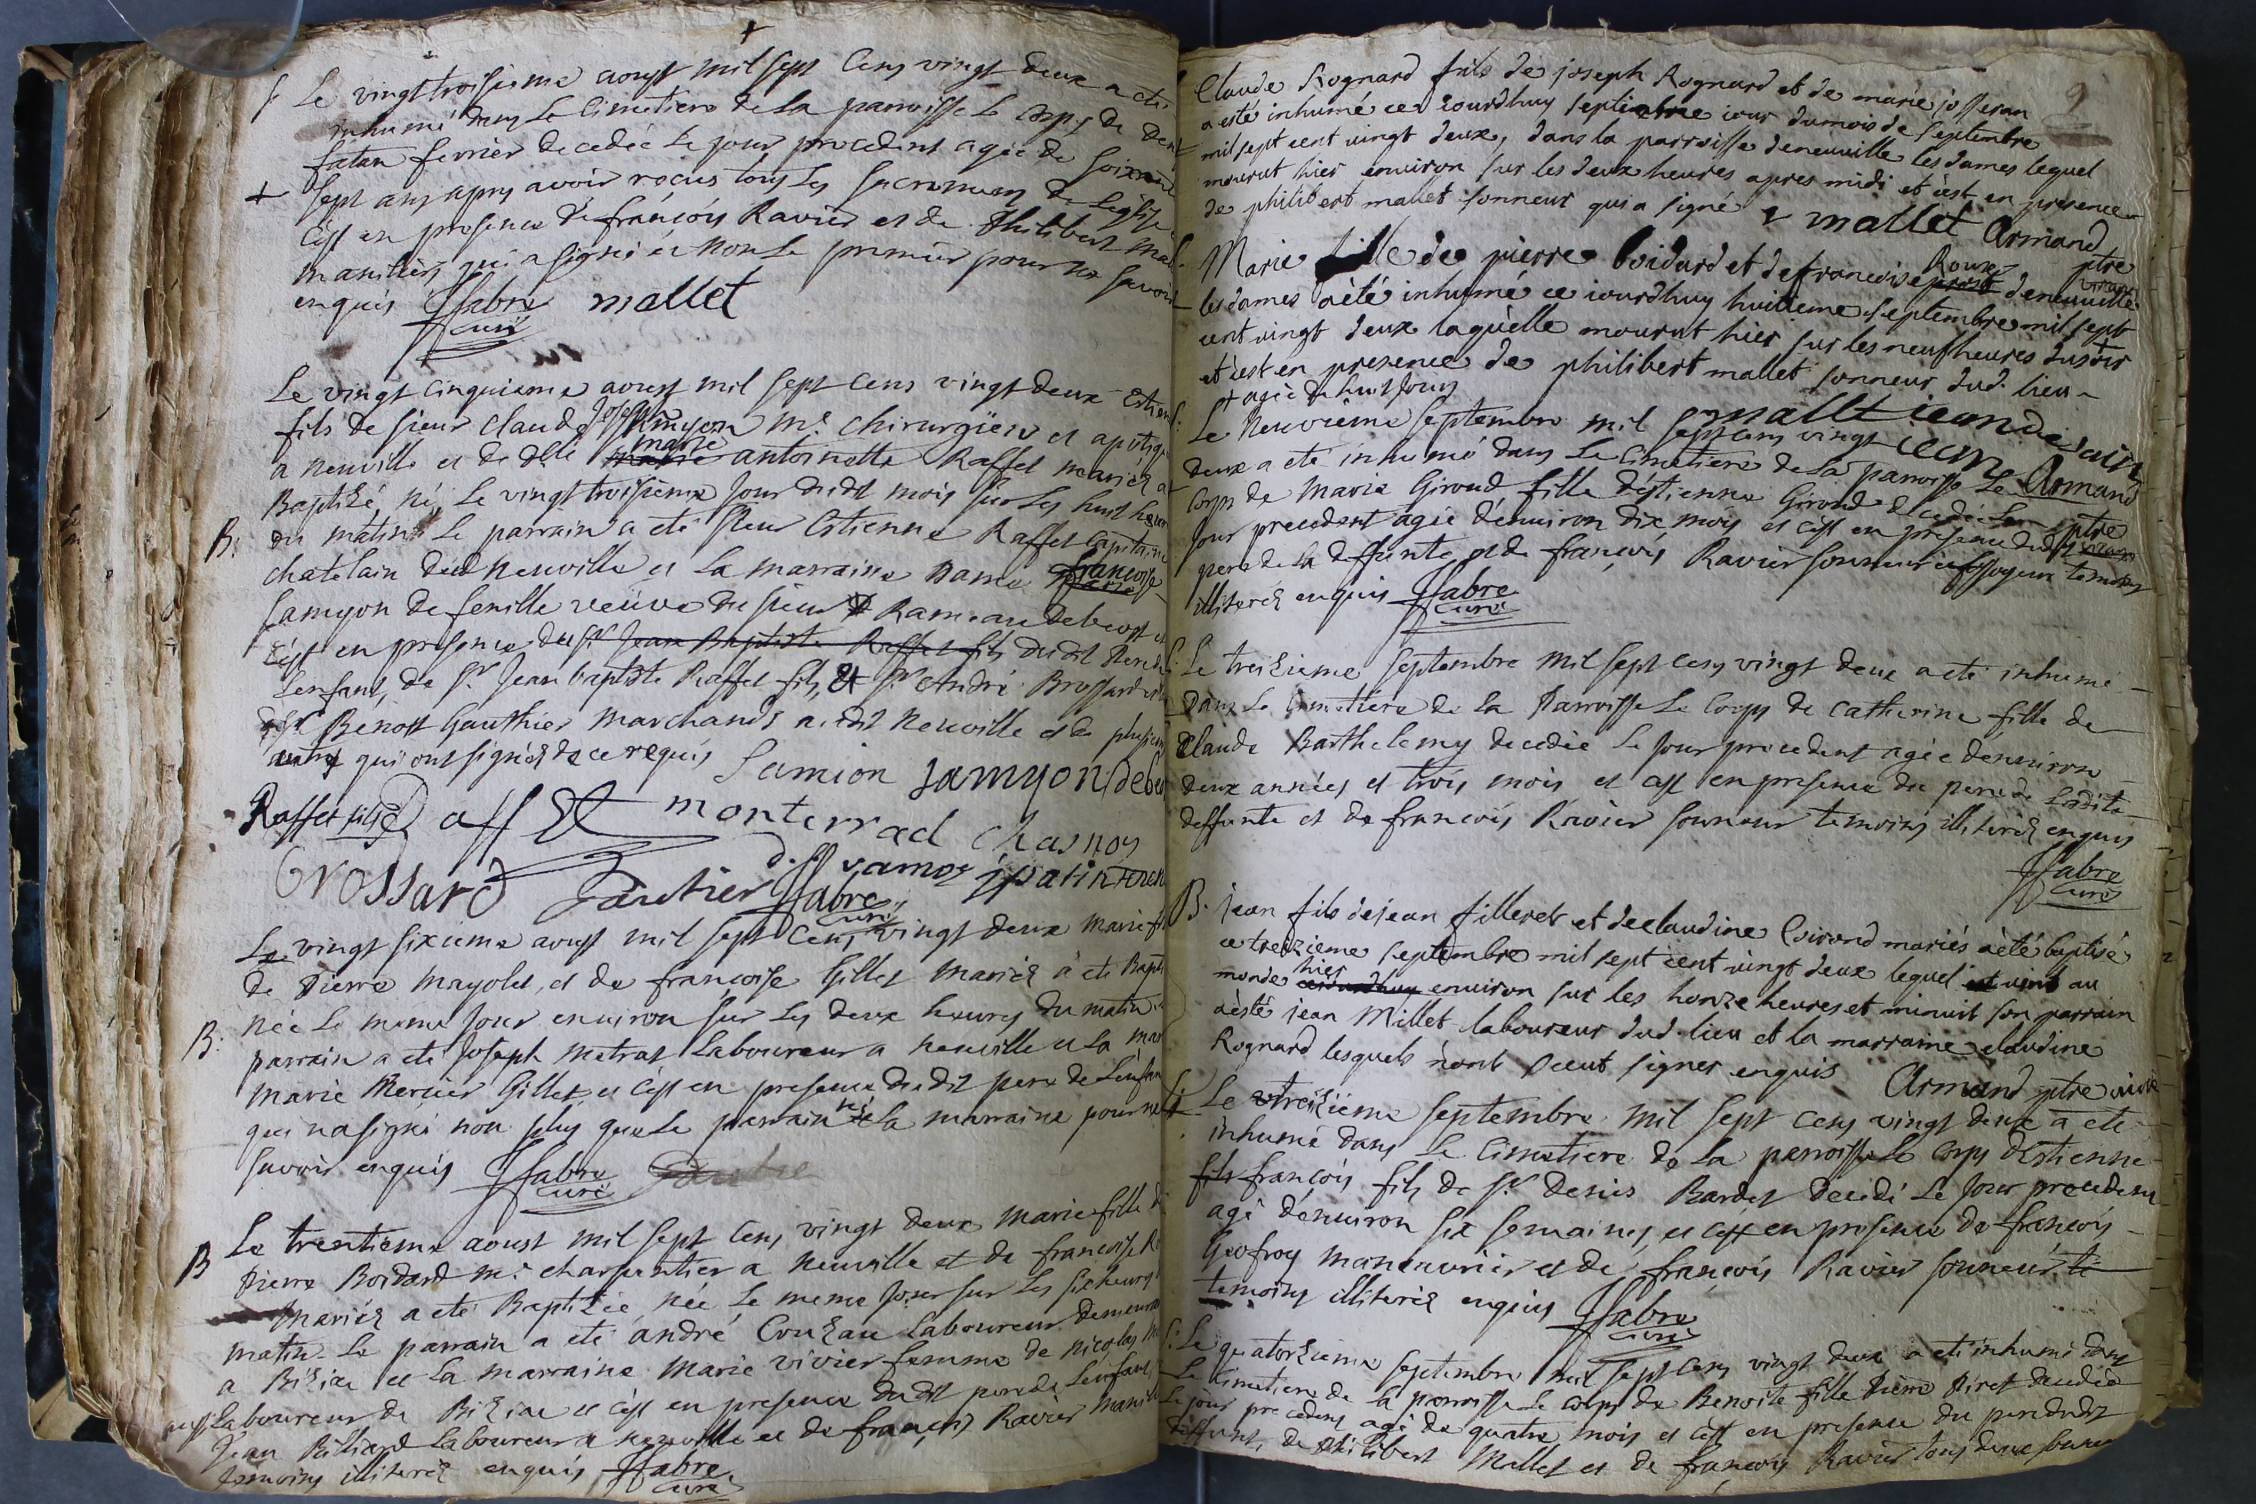 S. Le vingt troisieme aoust mil sept cens vingt deux a eté
inhumé dans Le Cimetiere de La parroisse Le Corps de
fevrier decedée Le jour precedent agée de soixante
sept ans apres avoir reçus tous Les sacremens de Leglise
C'est en presence de françois Ravier et de Philibert
qui a signé et non Le premier pour ne savoir
enquis ffabre mallet
curé
Le vingt cinquieme aoust mil sept cens vingt deux
fils de sieur Claude Joseph Samyon Me. chirurgien et
a neuville et de dlle marie antoinette Raffet mariés a
Baptizé, né, Le vingt troisieme Jour dudit mois sur Les huit heures
B. du matin Le parrain a eté sieur Estienne Raffet capitaine
chatelain dud neuville et La marraine Dame françoise
Samyon de fenille veüve du sieur Rameau
C'est en presence du sr. Jean Baptiste Raffet fils dudit
Lenfant, de Sr. Jean baptiste Raffet fils, et Sr. andré Brossard
Sr. Benoit Gauthier Marchands audit neuville et de plusieurs
autres qui ont signés de ce requis Samion Samyon
Raffet fils Raffet monterrad chasnoy
Brossard Gautier ffabre
curé
Le vingt sixieme aoust mil sept cens vingt deux marie
de Pierre Mayolet, et de françoise Gillet Mariés a eté
née Le meme Jour environ sur Les deux heures du matin
B. parrain a eté Joseph Metrat Laboureur a neuville et La
marie Mercier Gillet, et c'est en presence dudit pere de L'enfant
qui na signé non plus que Le parrain né La marraine pour ne
savoir enquis ffabre
curé
B Le trentieme aoust mil sept cens vingt deux Marie fille
Pierre Boidard Me. charpentier a neuville et de françoise
Mariés a eté Baptizée, née Le meme Jour sur Les six heures
matin. Le parrain a eté andré Couzau Laboureur
a Biziac et La marraine Marie vivier femme de Nicolas
aussi Laboureur de Biziac et c'est en presence dudit pere de Lenfant,
Jean Laboureur a neuville et de françois Ravier
temoins illiterés enquis ffabre
curé
9
Claude Rognard fils de joseph Rognard et de marie josseran
a esté inhumé ce iourdhuy iour du mois de septembre
mil sept cent vingt deux, dans la parroisse deneuville les dames lequel
mourut hier environ sur les deux heures apres midi et c'est en presence
de philibert mallet sonneur qui a signé mallet Armand
ptre
Marie fille de pierre boidard et de francoise Roux deneuville
les dames a été inhumé ce iourdhuy huitieme septembre mil sept
cent vingt deux laquelle mourut hier sur les neuf heures du soir
et c'est en presence de philibert mallet sonneur dud. lieu
+ agée de huit Jours mallet
Le Neuvieme Septembre mil sept cens vingt Armand
deux a eté inhumé dans Le Cimetiere de La parroisse Le ptre
Corps de Marie Giroud fille d'Estienne Giroud decedée Le
Jour precedent agée d'environ dix mois et c'est en presence dudit
pere de La deffunte et de françois Ravier sonneur temoins
illiterés enquis ffabre
curé
Le treizieme Septembre Mil sept cens vingt deux a eté inhumé
Dans Le Cimetiere de La Parroisse Le Corps de Catherine fille de
Claude Barthelemy decedée Le Jour precedent agée denviron
deux années et trois mois et c'est en presence du pere de Ladite
deffunte et de françois Ravier sonneur temoins illiterés enquis
ffabre
curé
B. jean fils de jean filleret et de claudine Girond mariés a été baptisé
ce treizieme septembre mil sept cent vingt deux lequel vint au
monde hier environ sur les honze heures et minuit son parrain
a esté jean Millet laboureur dud. lieu et la marraine claudine
Rognard lesquels n'ont sceut signer enquis Armand ptre vicaire
Le treizieme Septembre mil sept cens vingt deux a eté
inhumé dans Le Cimetiere de La parroisse Le Corps d'Estienne
françois fils de Sr. denis Bardet decedé Le Jour precedent
agé d'environ six semaines, et c'est en presence de françois
Geofroy manouvrier et de françois Ravier sonneur
temoins illiterés enquis ffabre
curé
S. Le quatorzieme Septembre mil sept cens vingt deux a eté inhumé dans
Le Cimetiere de La parroisse Le corps de Benoite fille Pierre Piret decedée
Le jour precedens agé de quatre mois et c'est en presence du pere dudit
deffunt, de Philibert Mallet et de françois Ravier tous deux